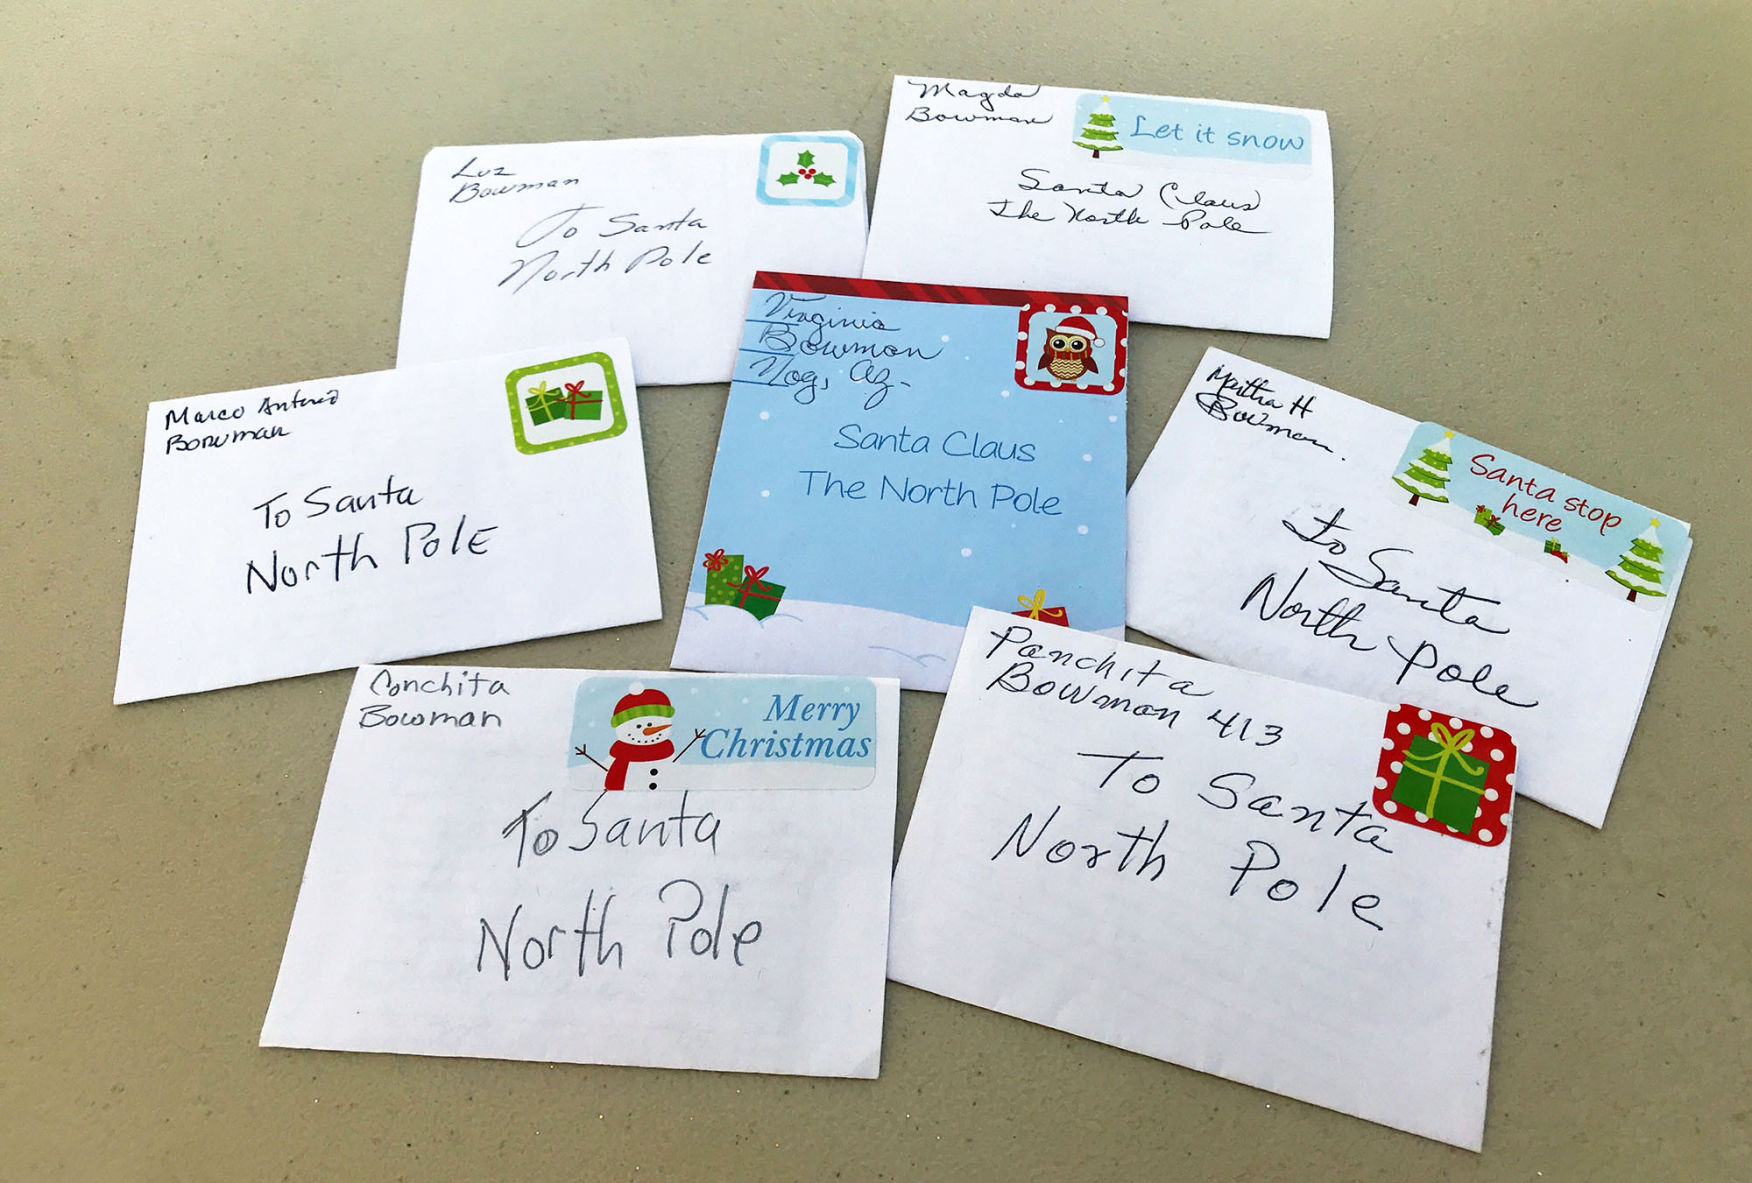 Luz
Bowman
To Santa
North Pole
Magda
Bowman
Let it snow
Santa Claus
The North Pole
Marco Antonio
Bowman
To Santa
North Pole
Virginia
Bowman
Nog, Az.
Santa Claus
The North Pole
Martha H
Bowman.
Santa stop
here
To Santa
North Pole
Conchita
Bowman
Merry
Christmas
To Santa
North Pole
Panchita
Bowman 413
To Santa
North Pole